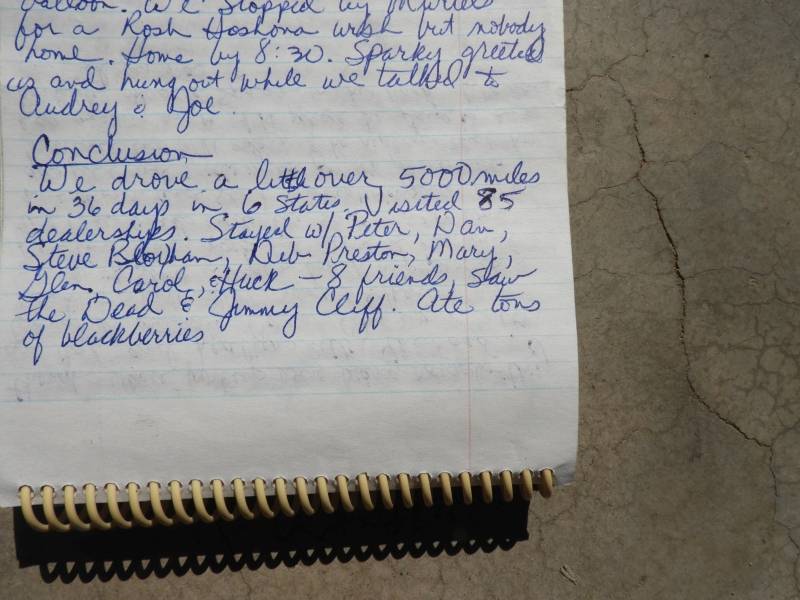 balloon. We stopped by Muriel's
for a Rosh Hoshona wish but nobody
home. Home by 8:30. Sparky greeted
us and hung out while we talked to
Audrey & Joe.
Conclusion
We drove a little over 5000 miles
in 36 days in 6 states. Visited 85
dealerships. Stayed w/ Peter, Dan,
Steve Bloom, Deb Preston, Mary,
Glen, Carol, & Huck – 8 friends. Saw
the Dead & Jimmy Cliff. Ate tons
of blackberries